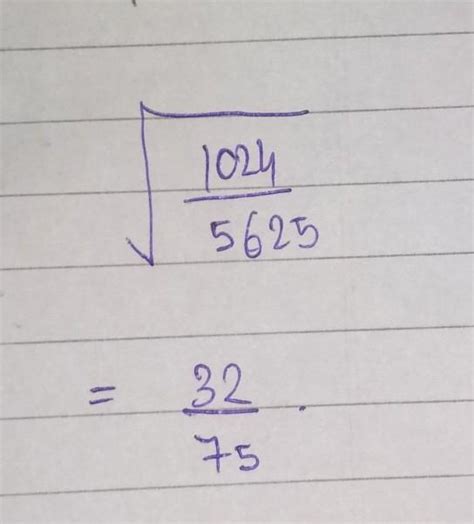 √1024/5625
= 32/75.